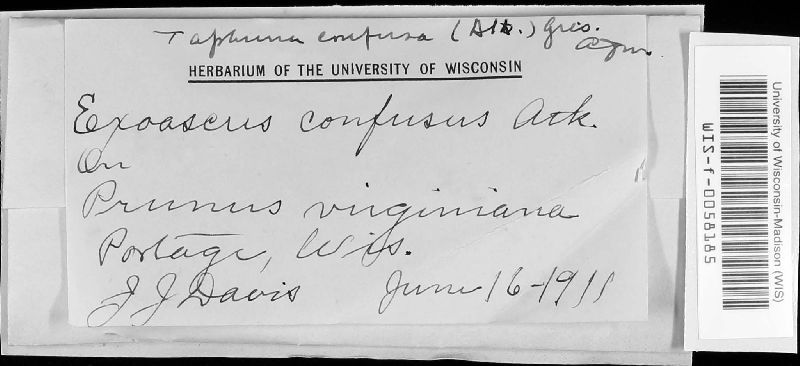 Taphrina confusa (Atk.) Gies.
HERBARIUM OF THE UNIVERSITY OF WISCONSIN
Exoascus confusus Atk.
On
Prunus virginiana
Portage, Wis.
J J Davis June 16-1911
University of Wisconsin-Madison (WIS)
WIS-f-0058185